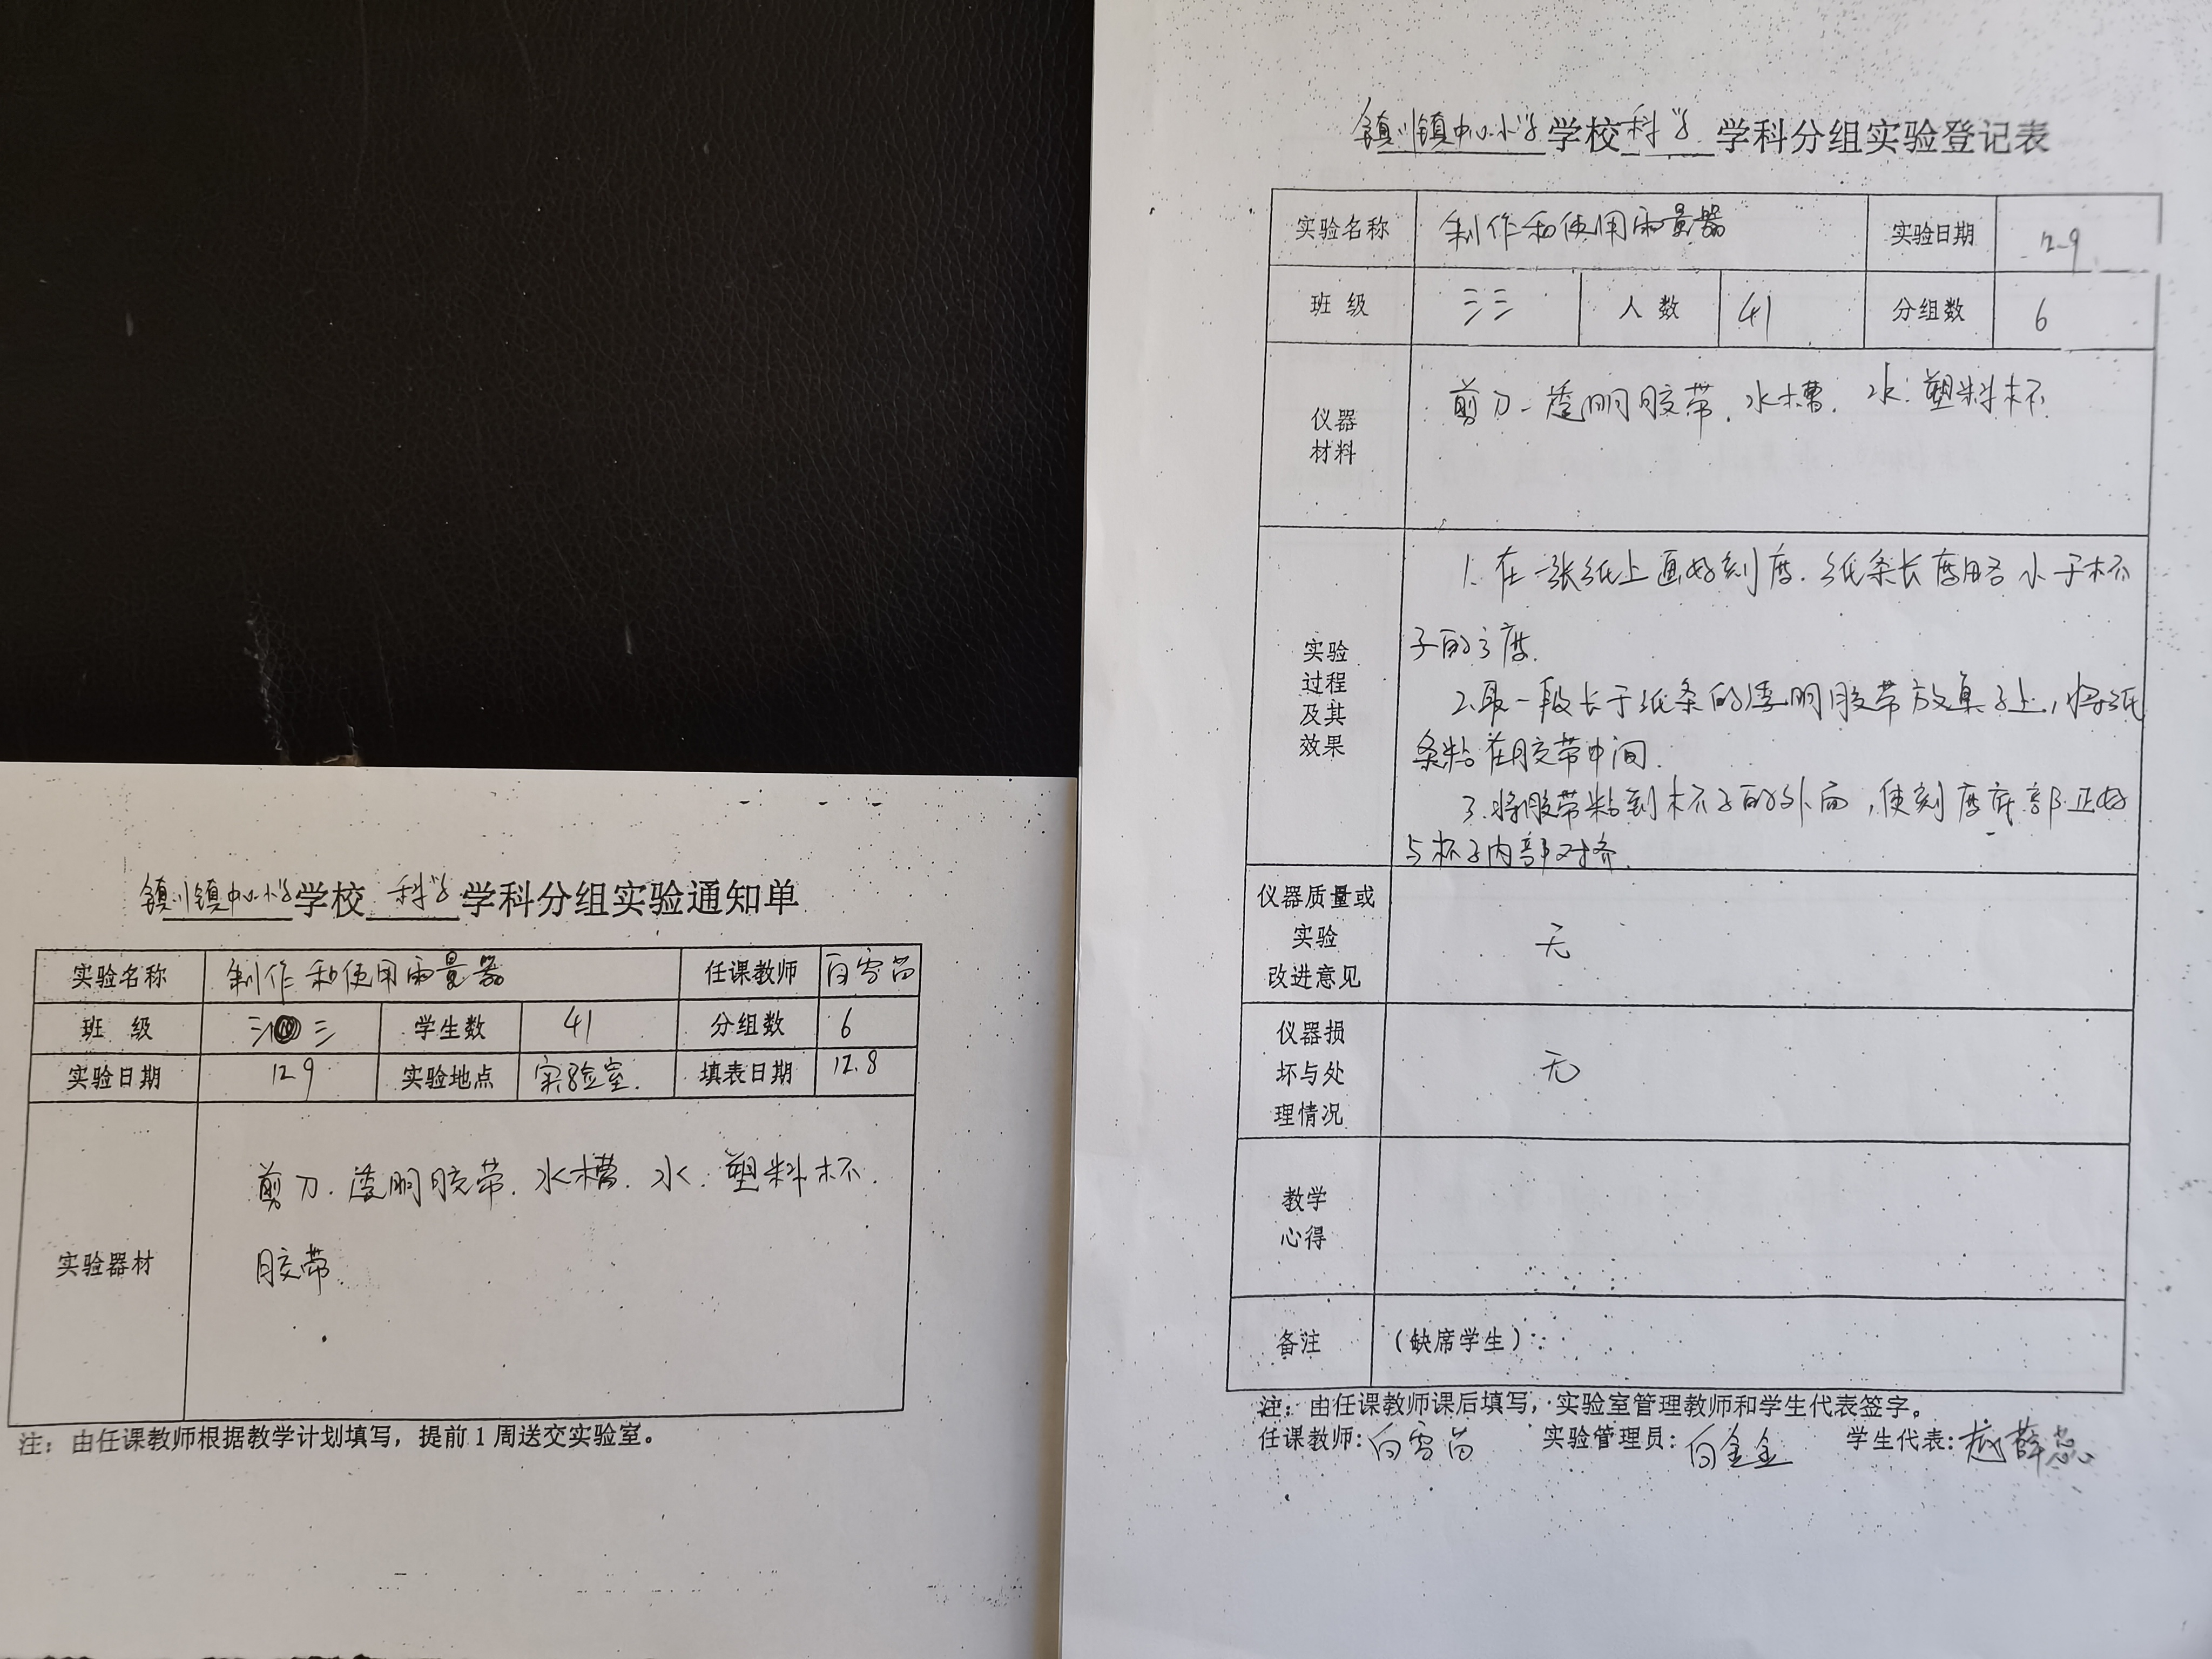 镇川镇中心小学学校 科学 学科分组实验通知单
实验名称 制作和使用雨量器 任课教师 白雪苗
班 级 三 三 学生数 41 分组数 6
实验日期 12.9 实验地点 实验室. 填表日期 12.8
实验器材 剪刀.透明胶带.水槽.水.塑料杯.
胶带
注：由任课教师根据教学计划填写，提前1周送交实验室。
镇川镇中心小学学校 科学 学科分组实验登记表
实验名称 制作和使用雨量器 实验日期 12.9
班 级 三三 人 数 41 分组数 6
仪器
材料
剪刀.透明胶带.水槽.水.塑料杯
实验
过程
及其
效果
1.在一张纸上画好刻度.纸条长度略小于杯
子的高度.
2.取一段长于纸条的透明胶带放桌子上,将纸
条粘在胶带中间.
3.将胶带粘到杯子的外面,使刻度底部正好
与杯子内部对齐.
仪器质量或
实验
改进意见
无
仪器损
坏与处
理情况
无
教学
心得
备注 （缺席学生）：
注：由任课教师课后填写，实验室管理教师和学生代表签字。
任课教师:白雪苗 实验管理员:白金金 学生代表: